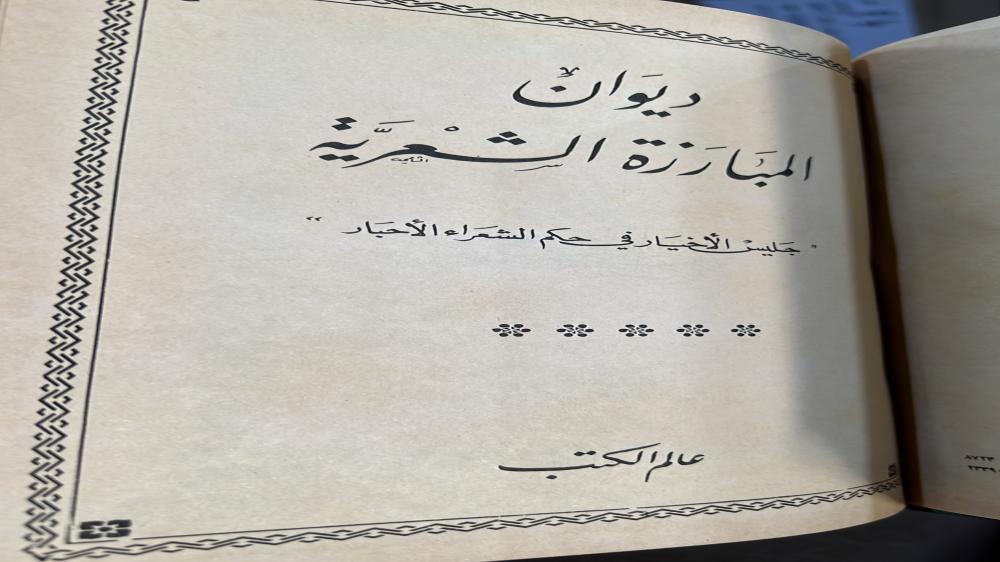 ديوان
المبارزة الشعرية
"جليس الأخيار في حكم الشعراء الأحبار"
عالم الكتب
٨٧٢٣